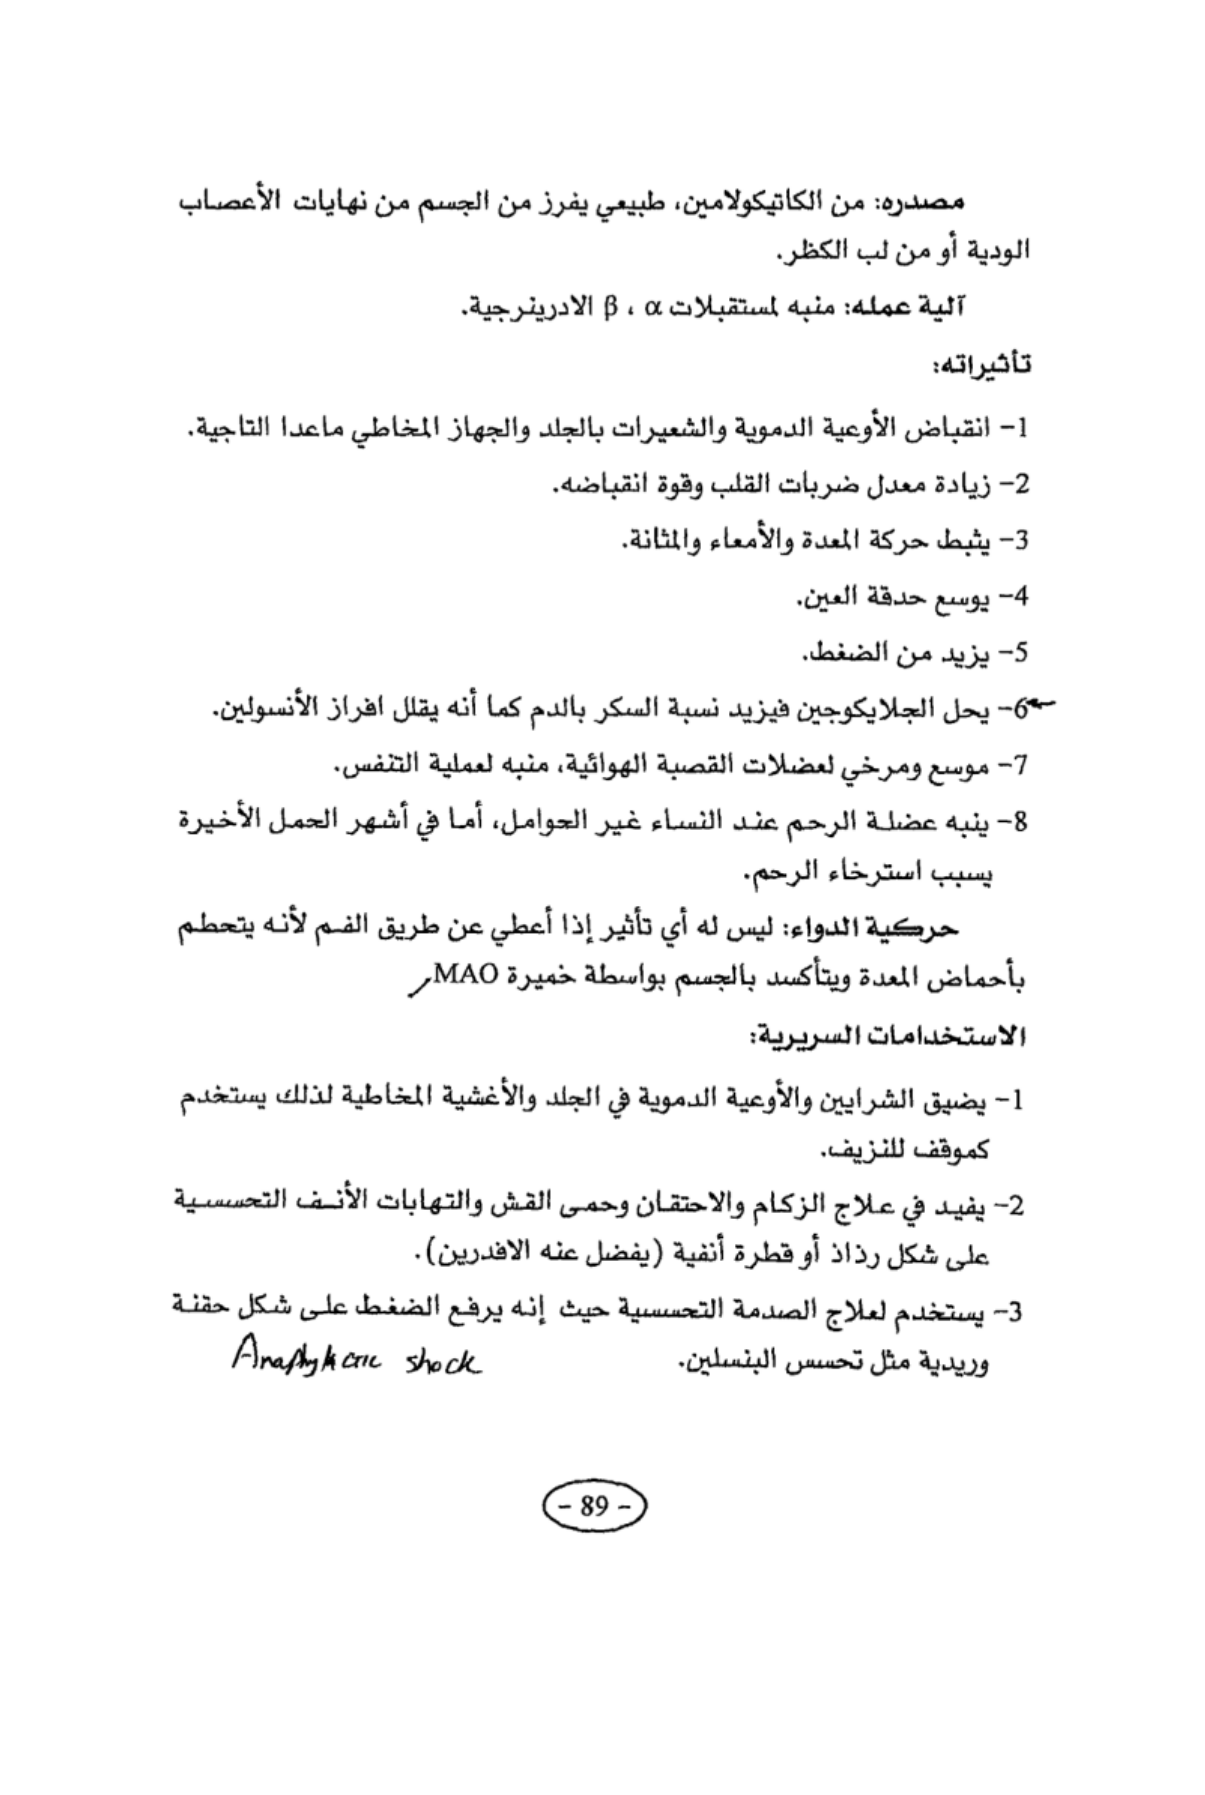 مصدره: من الكاتيكولامين، طبيعي يفرز من الجسم من نهايات الأعصاب
الودية أو من لب الكظر.
آلية عمله: منبه لمستقبلات α ، β الادرينرجية.
تأثيراته:
1- انقباض الأوعية الدموية والشعيرات بالجلد والجهاز المخاطي ماعدا التاجية.
2- زيادة معدل ضربات القلب وقوة انقباضه.
3- يثبط حركة المعدة والأمعاء والمثانة.
4- يوسع حدقة العين.
5- يزيد من الضغط.
6- يحل الجلايكوجين فيزيد نسبة السكر بالدم كما أنه يقلل افراز الأنسولين.
7- موسع ومرخي لعضلات القصبة الهوائية، منبه لعملية التنفس.
8- ينبه عضلة الرحم عند النساء غير الحوامل، أما في أشهر الحمل الأخيرة
يسبب استرخاء الرحم.
حركية الدواء: ليس له أي تأثير إذا أعطي عن طريق الفم لأنه يتحطم
بأحماض المعدة ويتأكسد بالجسم بواسطة خميرة MAO
الاستخدامات السريرية:
1- يضيق الشرايين والأوعية الدموية في الجلد والأغشية المخاطية لذلك يستخدم
كموقف للنزيف.
2- يفيد في علاج الزكام والاحتقان وحمى القش والتهابات الأنف التحسسية
على شكل رذاذ أو قطرة أنفية (يفضل عنه الافدرين).
3- يستخدم لعلاج الصدمة التحسسية حيث إنه يرفع الضغط على شكل حقنة
وريدية مثل تحسس البنسلين. Anaphylactic shock
- 89 -